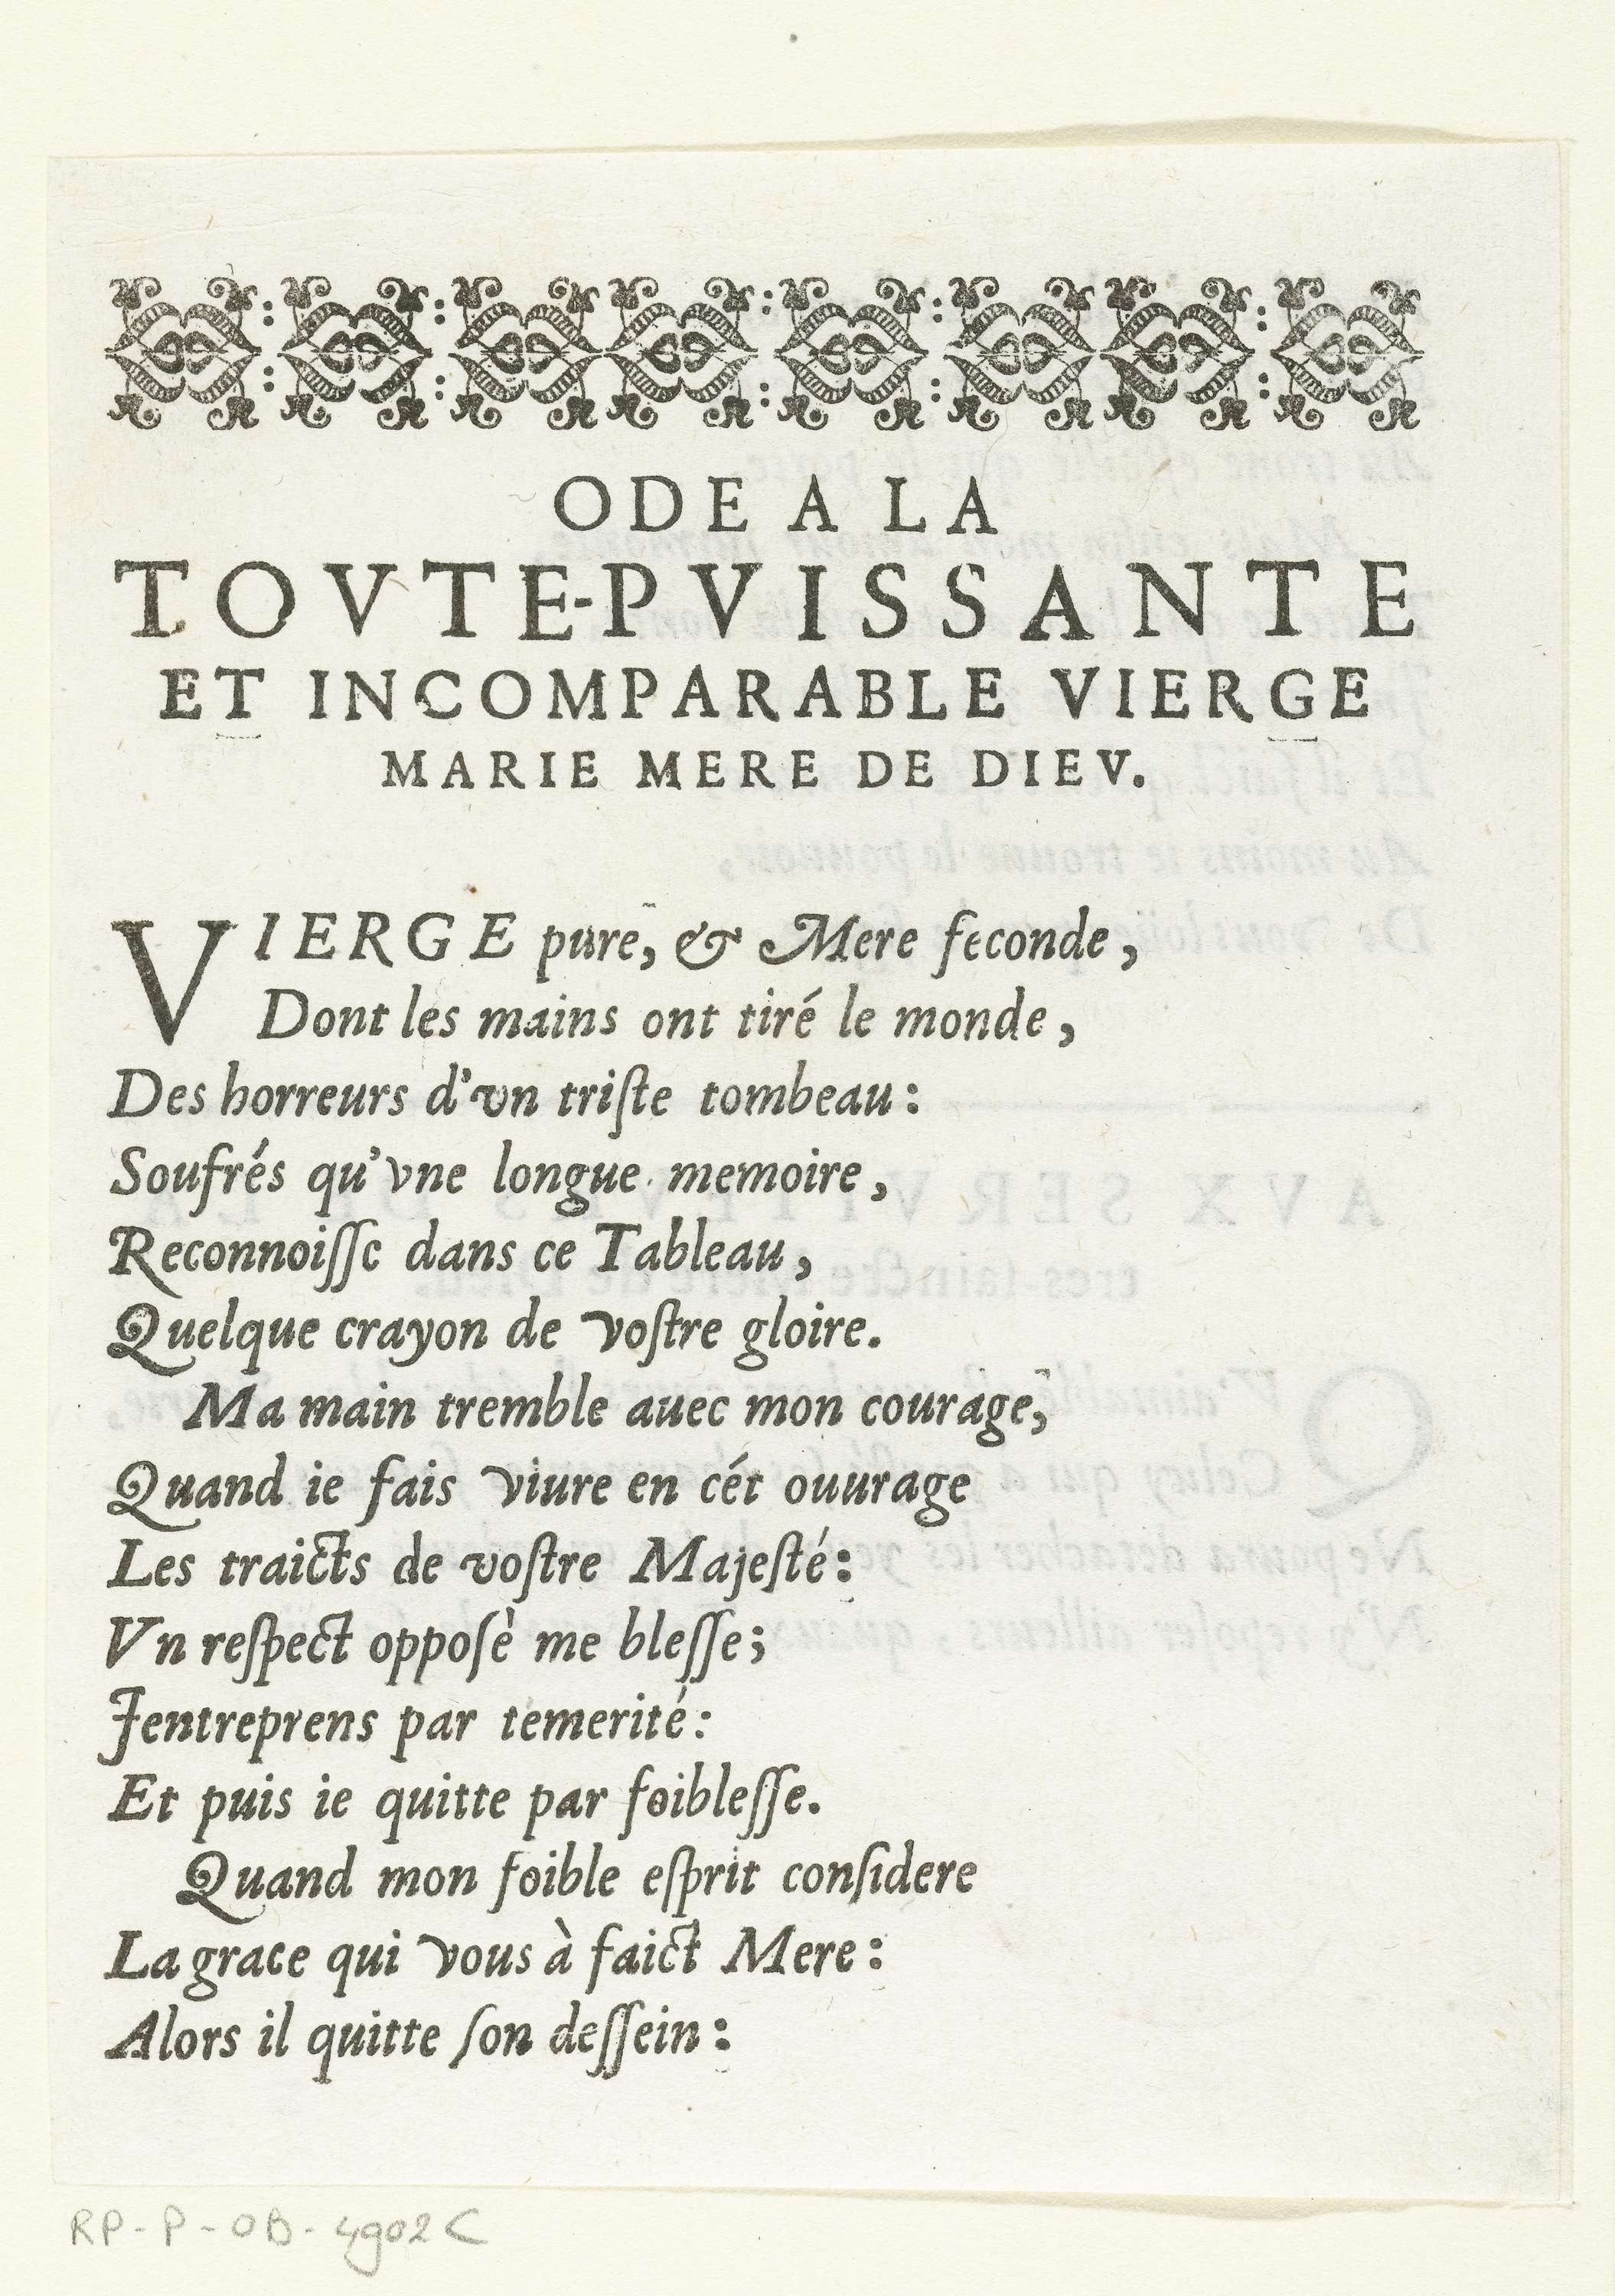 ODE A LA
TOVTE-PVISSANTE
ET INCOMPARABLE VIERGE
MARIE MERE DE DIEV.
VIERGE pure, & Mere feconde,
Dont les mains ont tiré le monde,
Des horreurs d'vn triſte tombeau:
Soufrés qu'vne longue memoire,
Reconnoiſſe dans ce Tableau,
Quelque crayon de voſtre gloire.
Ma main tremble auec mon courage,
Quand ie fais viure en cét ouurage
Les traicts de voſtre Majeſté:
Vn reſpect oppoſè me bleſſe;
Jentreprens par temerité:
Et puis ie quitte par foibleſſe.
Quand mon foible eſprit conſidere
La grace qui vous à faict Mere:
Alors il quitte ſon deſſein:
RP-P-OB-4902C